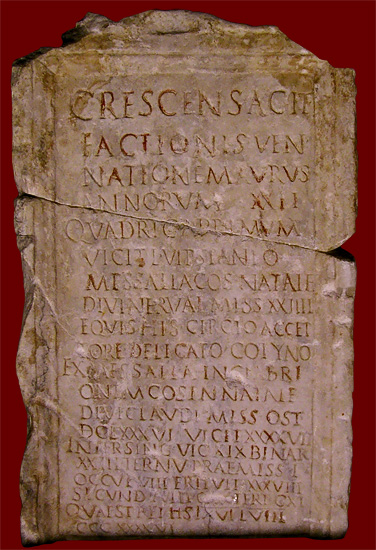 CRESCENS AGIT
FACTIONIS VEN
NATIONE MAURUS
ANNORUM XXII
QUADRIGA PRIMUM
VICIT L VIPSTANIO
MESSALLA COS NATALE
DIVI NERVAE MISS XXIIII
EQUIS HIS CIRCIO ACCEP
TORE DELICATO COTYNO
EX MESSALLA IN GLABRI
ONEM COS IN NATALE
DIVI CLAUDI MISS OST
DCLXXXVI VICIT XXXXVII
INTER SING VIC XIX BINAR
XXIII TERN V PRAEMISS I
OCCUP VIII ERIPUIT XXXVIII
SECUND TULIT TERT CXI
QUAEST RET HS XV LVIII
CCCXXXXVI